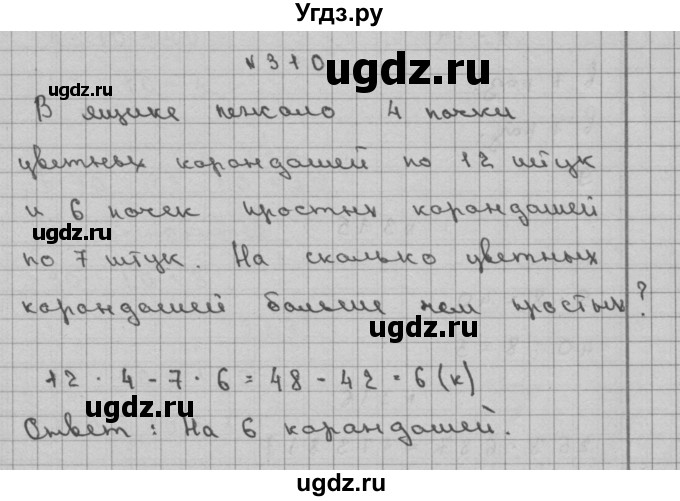 Угдз.ру
№ 310
В ящике лежало 4 пачки
цветных карандашей по 12 штук
и 6 пачек простых карандашей
по 7 штук. На сколько цветных
карандашей больше чем простых?
12 · 4 - 7 · 6 = 48 - 42 = 6 (к)
Ответ: На 6 карандашей.
ugdz.ru
ugdz.ru
ugdz.ru
ugdz.ru
ugdz.ru
ugdz.ru
ugdz.ru
ugdz.ru